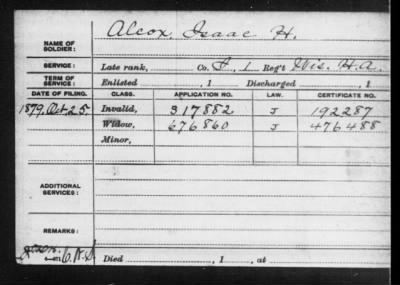 NAME OF SOLDIER: Alcox, Isaac H.
SERVICE: Late rank, Co. F, 1 Reg't Wis. H.A.
TERM OF SERVICE: Enlisted , 1 Discharged , 1
DATE OF FILING. CLASS. APPLICATION NO. LAW. CERTIFICATE NO.
1879, Oct. 25. Invalid, 317882 J 192287
Widow, 676860 J 476488
Minor,
ADDITIONAL SERVICES:
REMARKS:
Died , 1 , at